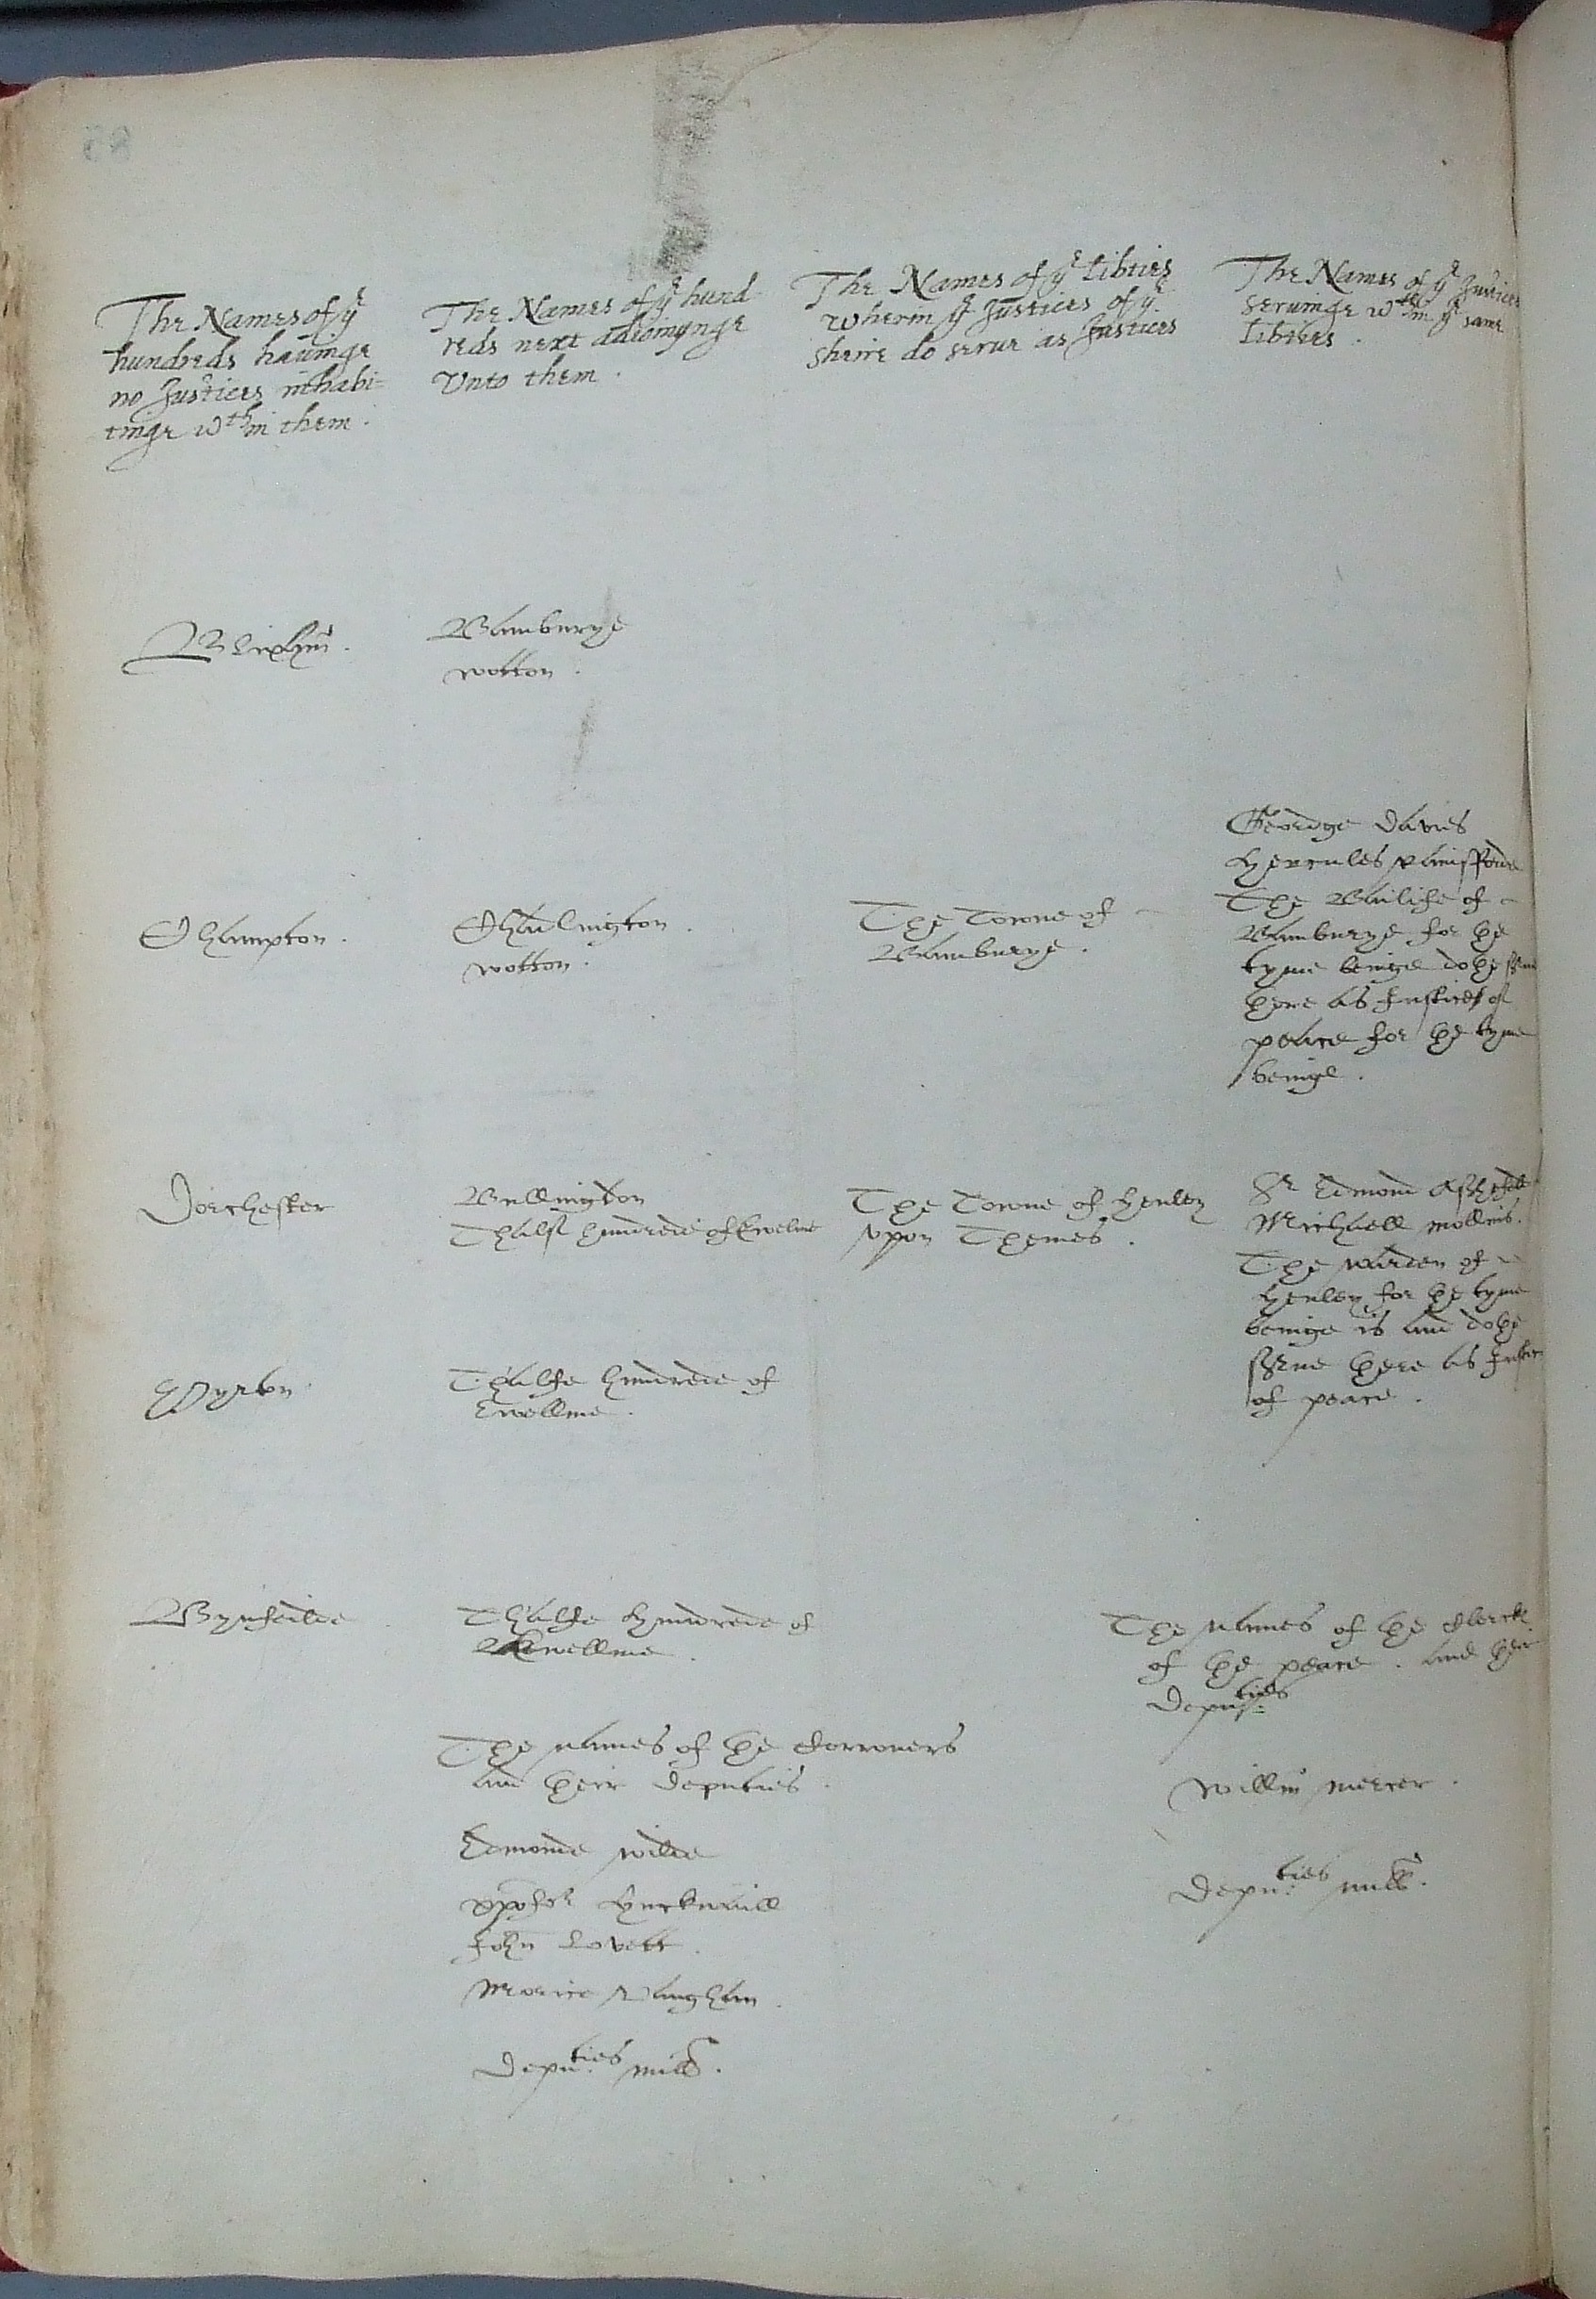 The Names of yᵉ
hundreds hauinge
no Justices inhabi=
tinge wᵗʰin them .
The Names of yᵉ hund
reds next adioynynge
Vnto them .
The Names of yᵉ libties
wherin yᵉ Justices of yᵉ
sheire do serue as Justices
The Names of yᵉ Justices
seruinge wᵗʰin yᵉ same
libties .
Bamburye
wotton .
Champton .
Chadlington .
wotton .
The Towne of
Bamburye .
Geordge Danes
Hercules
The Bailife of
Bamburye for the
tyme beinge dothe serue
there as Justices of
peace for the tyme
beinge .
Dorchester
Bullington
Thalf hundrede of Ewelme
The Towne of Henley
vpon Themes .
Sʳ Edmond Asshefeld
Michaell Mollins .
The warden of
Henley for the tyme
beinge is and dothe
serue there as Justice
of peace .
Pyrton
Thalfe hundrede of
Ewellme .
Bynfeilde
Thalfe hundrede of
Ewellme .
The names of the Clercke
of the peace . and their
deputies
The names of the Corroners
and their deputies .
Willm̄ Mercer .
Edmonde Wilde
Xpofer
John Lovett .
Morice Vaughan .
deputies null .
deputies null .